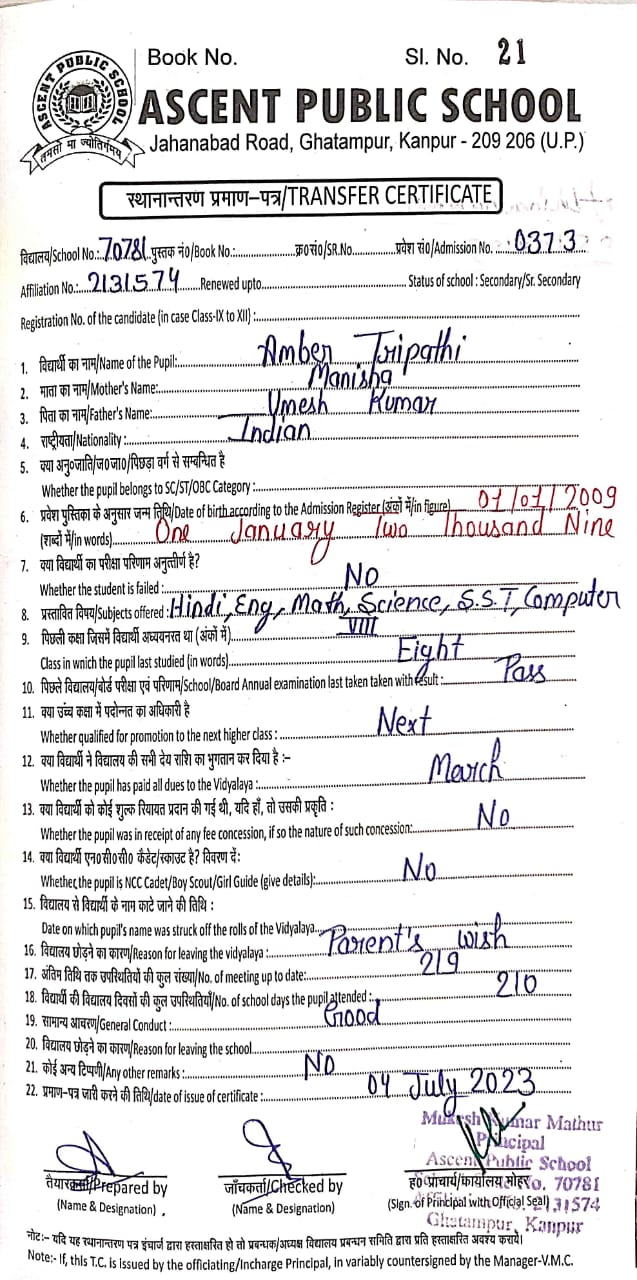 Book No. Sl. No. 21
ASCENT PUBLIC SCHOOL
तमसो मा ज्योतिर्गमय
ASCENT PUBLIC SCHOOL
Jahanabad Road, Ghatampur, Kanpur - 209 206 (U.P.)
स्थानान्तरण प्रमाण-पत्र/TRANSFER CERTIFICATE
विद्यालय/School No.: 70781 पुस्तक नं0/Book No.: क्र0सं0/SR.No. प्रवेश सं0/Admission No. 0373
Affiliation No.: 2131574 Renewed upto Status of school : Secondary/Sr. Secondary
Registration No. of the candidate (in case Class-IX to XII) :
1. विद्यार्थी का नाम/Name of the Pupil: Amber Tripathi
2. माता का नाम/Mother's Name: Manisha
3. पिता का नाम/Father's Name: Umesh Kumar
4. राष्ट्रीयता/Nationality : Indian
5. क्या अनु०जाति/ज०जा०/पिछड़ा वर्ग से सम्बन्धित है
Whether the pupil belongs to SC/ST/OBC Category :
6. प्रवेश पुस्तिका के अनुसार जन्म तिथि/Date of birth according to the Admission Register (अंकों में/in figure) 01/01/2009
(शब्दों में/in words) One January Two Thousand Nine
7. क्या विद्यार्थी का परीक्षा परिणाम अनुत्तीर्ण है?
Whether the student is failed : NO
8. प्रस्तावित विषय/Subjects offered : Hindi, Eng, Math, Science, S.S.T, Computer
9. पिछली कक्षा जिसमें विद्यार्थी अध्ययनरत था (अंकों में) VIII
Class in wnich the pupil last studied (in words) Eight
10. पिछले विद्यालय/बोर्ड परीक्षा एवं परिणाम/School/Board Annual examination last taken taken with result : Pass
11. क्या उच्च कक्षा में पदोन्नत का अधिकारी है
Whether qualified for promotion to the next higher class : Next
12. क्या विद्यार्थी ने विद्यालय की सभी देय राशि का भुगतान कर दिया है :-
Whether the pupil has paid all dues to the Vidyalaya : March
13. क्या विद्यार्थी को कोई शुल्क रियायत प्रदान की गई थी, यदि हाँ, तो उसकी प्रकृति :
Whether the pupil was in receipt of any fee concession, if so the nature of such concession: No
14. क्या विद्यार्थी एन०सी०सी० कैडेट/स्काउट है? विवरण दें:
Whether,the pupil is NCC Cadet/Boy Scout/Girl Guide (give details): No
15. विद्यालय से विद्यार्थी के नाम काटे जाने की तिथि :
Date on which pupil's name was struck off the rolls of the Vidyalaya
16. विद्यालय छोड़ने का कारण/Reason for leaving the vidyalaya : Parent's wish
17. अंतिम तिथि तक उपस्थितियों की कुल संख्या/No. of meeting up to date: 219
18. विद्यार्थी की विद्यालय दिवसों की कुल उपस्थितियाँ/No. of school days the pupil attended : 210
19. सामान्य आचरण/General Conduct : Good
20. विद्यालय छोड़ने का कारण/Reason for leaving the school
21. कोई अन्य टिप्पणी/Any other remarks : NO
22. प्रमाण-पत्र जारी करने की तिथि/date of issue of certificate : 04 July 2023
Mukesh Kumar Mathur
Principal
Ascent Public School
No. 70781
2131574
Ghatampur, Kanpur
तैयारकर्ता/Prepared by जाँचकर्ता/Checked by ह० प्राचार्य/कार्यालय मोहर
(Name & Designation) (Name & Designation) (Sign. of Principal with Official Seal)
नोट:- यदि यह स्थानान्तरण पत्र इंचार्ज द्वारा हस्ताक्षरित हो तो प्रबन्धक/अध्यक्ष विद्यालय प्रबन्धन समिति द्वारा प्रति हस्ताक्षरित अवश्य करायें।
Note:- If, this T.C. is issued by the officiating/Incharge Principal, in variably countersigned by the Manager-V.M.C.